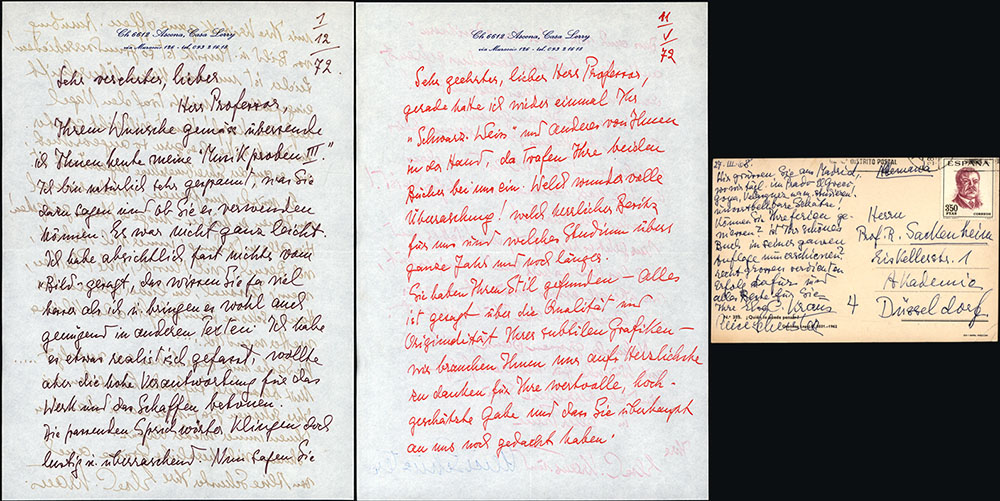 Ch 6612 Ascona, Casa Lorry
via Muraccio 186 - tel. 093 2 16 12
1/12 72
Sehr verehrter, lieber
Herr Professor,
Ihrem Wunsche gemäss übersende
ich Ihnen heute meine "Musik proben III."
Ich bin natürlich sehr gespannt, was Sie
dazu sagen und ob Sie es verwenden
können. Es war nicht ganz leicht.
Ich habe absichtlich fast nichts vom
"Bild" gesagt, das wissen Sie ja viel
besser als ich u. bringen es wohl auch
genügend in anderen Texten. Ich habe
es etwas realistisch gefasst, wollte
aber die hohe Verantwortung für das
Werk und das Schaffen betonen.
Die passenden Sprichwörter klingen doch
lustig u. überraschend. Nun sagen Sie
Ch 6612 Ascona, Casa Lorry
via Muraccio 186 - tel. 093 2 16 12
11/V 72
Sehr geehrter, lieber Herr Professor,
gerade hatte ich wieder einmal Ihr
"Schwarz-Weiss" und anderes von Ihnen
in der Hand, da trafen Ihre beiden
Bücher bei uns ein. Welch wundervolle
Überraschung! welch herrlicher Besitz
für uns und welches Studium übers
ganze Jahr und noch länger.
Sie haben Ihren Stil gefunden - alles
ist gesagt über die Qualität und
Originalität Ihrer subtilen Grafiken -
wir brauchen Ihnen nur aufs Herrlichste
zu danken für Ihre wertvolle, hoch-
geschätzte Gabe und dass Sie überhaupt
an uns noch gedacht haben!
29.III.68.
DISTRITO POSTAL
Alemania
ESPAÑA
350 PTAS
CORREOS
Wir grüssen Sie aus Madrid,
Prado
Goya, Velazquez
Schätze!
Können Sie Ihre Ferien ge-
niessen? Ist Ihr schönes
Buch in seiner ganzen
Auflage nun erschienen
recht grossen verdienten
Erfolg dafür und
alles Beste für Sie
Ihre Else C. Kraus
Herrn
Prof. R. Sackenheim
Eiskellerstr. 1
Akademie
4 Düsseldorf